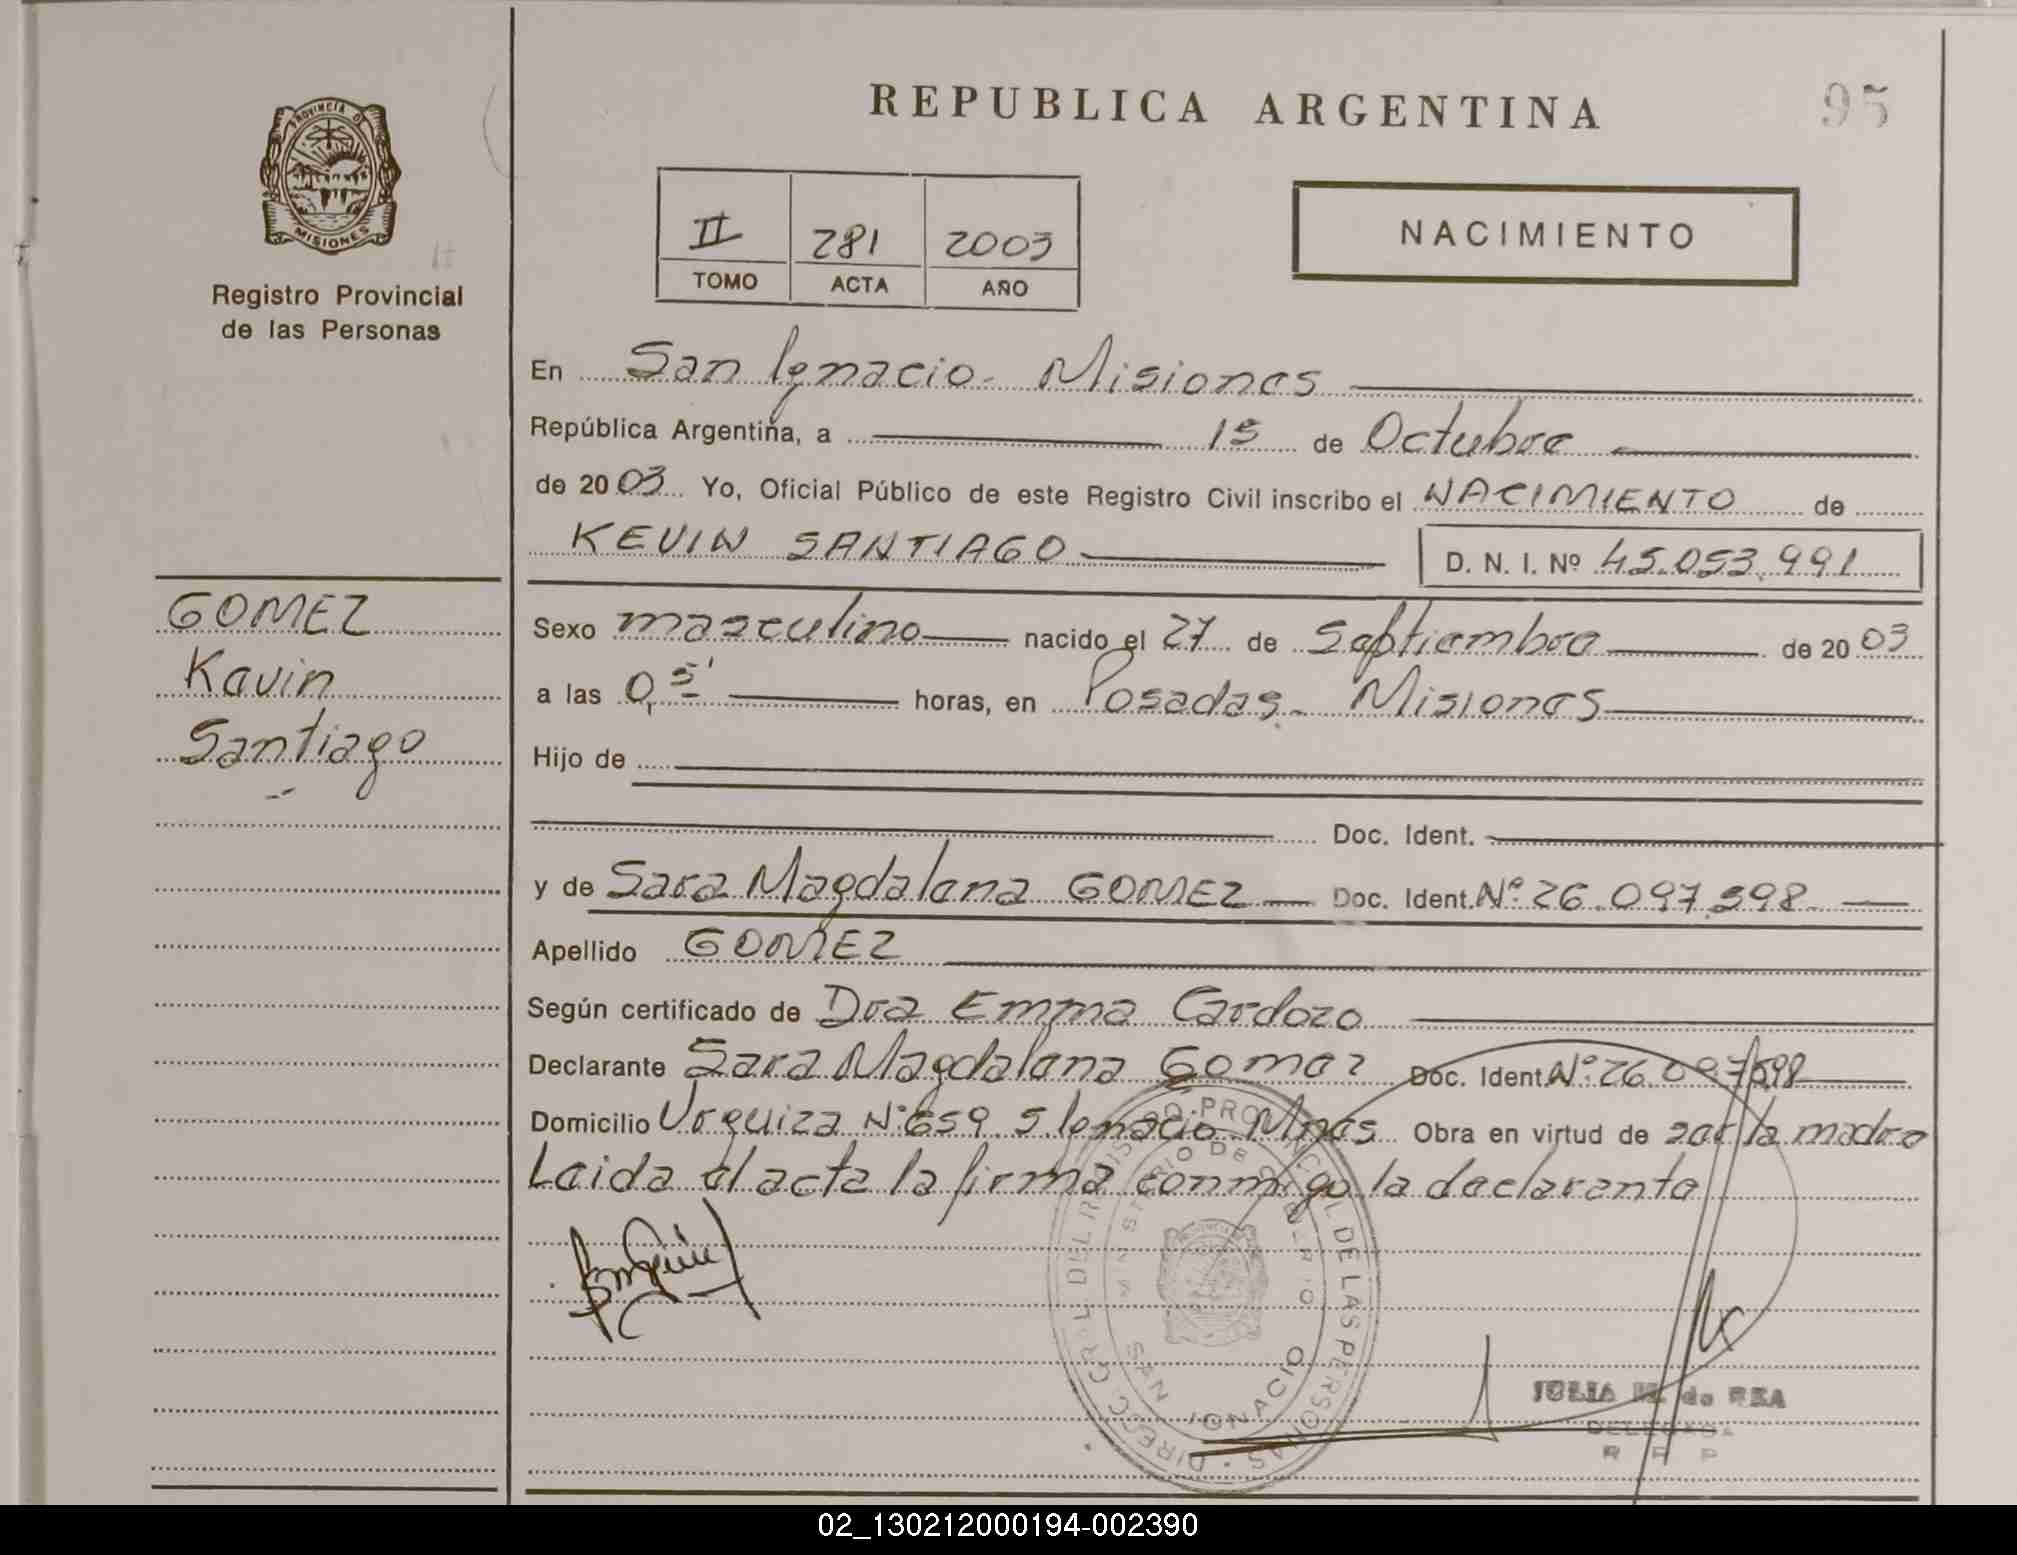 REPUBLICA ARGENTINA
95
PROVINCIA DE
MISIONES
Registro Provincial
de las Personas
II 281 2003
TOMO ACTA AÑO
NACIMIENTO
En San Ignacio - Misiones
República Argentina, a 15 de Octubre
de 2003 Yo, Oficial Público de este Registro Civil inscribo el NACIMIENTO de
KEVIN SANTIAGO D. N. I. Nº 45.053.991
GOMEZ
Kevin
Santiago
Sexo masculino nacido el 27 de Septiembre de 2003
a las 0,5' horas, en Posadas - Misiones
Hijo de
Doc. Ident.
y de Sara Magdalena GOMEZ Doc. Ident. Nº 26.097.598
Apellido GOMEZ
Según certificado de Dra Emma Cardozo
Declarante Sara Magdalena Gomez Doc. Ident. Nº 26.097.598
Domicilio Urquiza Nº 659 S. Ignacio Mnes Obra en virtud de ser la madre
Leida el acta la firma conmigo la declarante
DIRECC. GRAL. DEL REGISTRO PROVINCIAL DE LAS PERSONAS
MINISTERIO DE GOBIERNO
SAN IGNACIO
JULIA de REA
DELEGADA
R P P
02_130212000194-002390